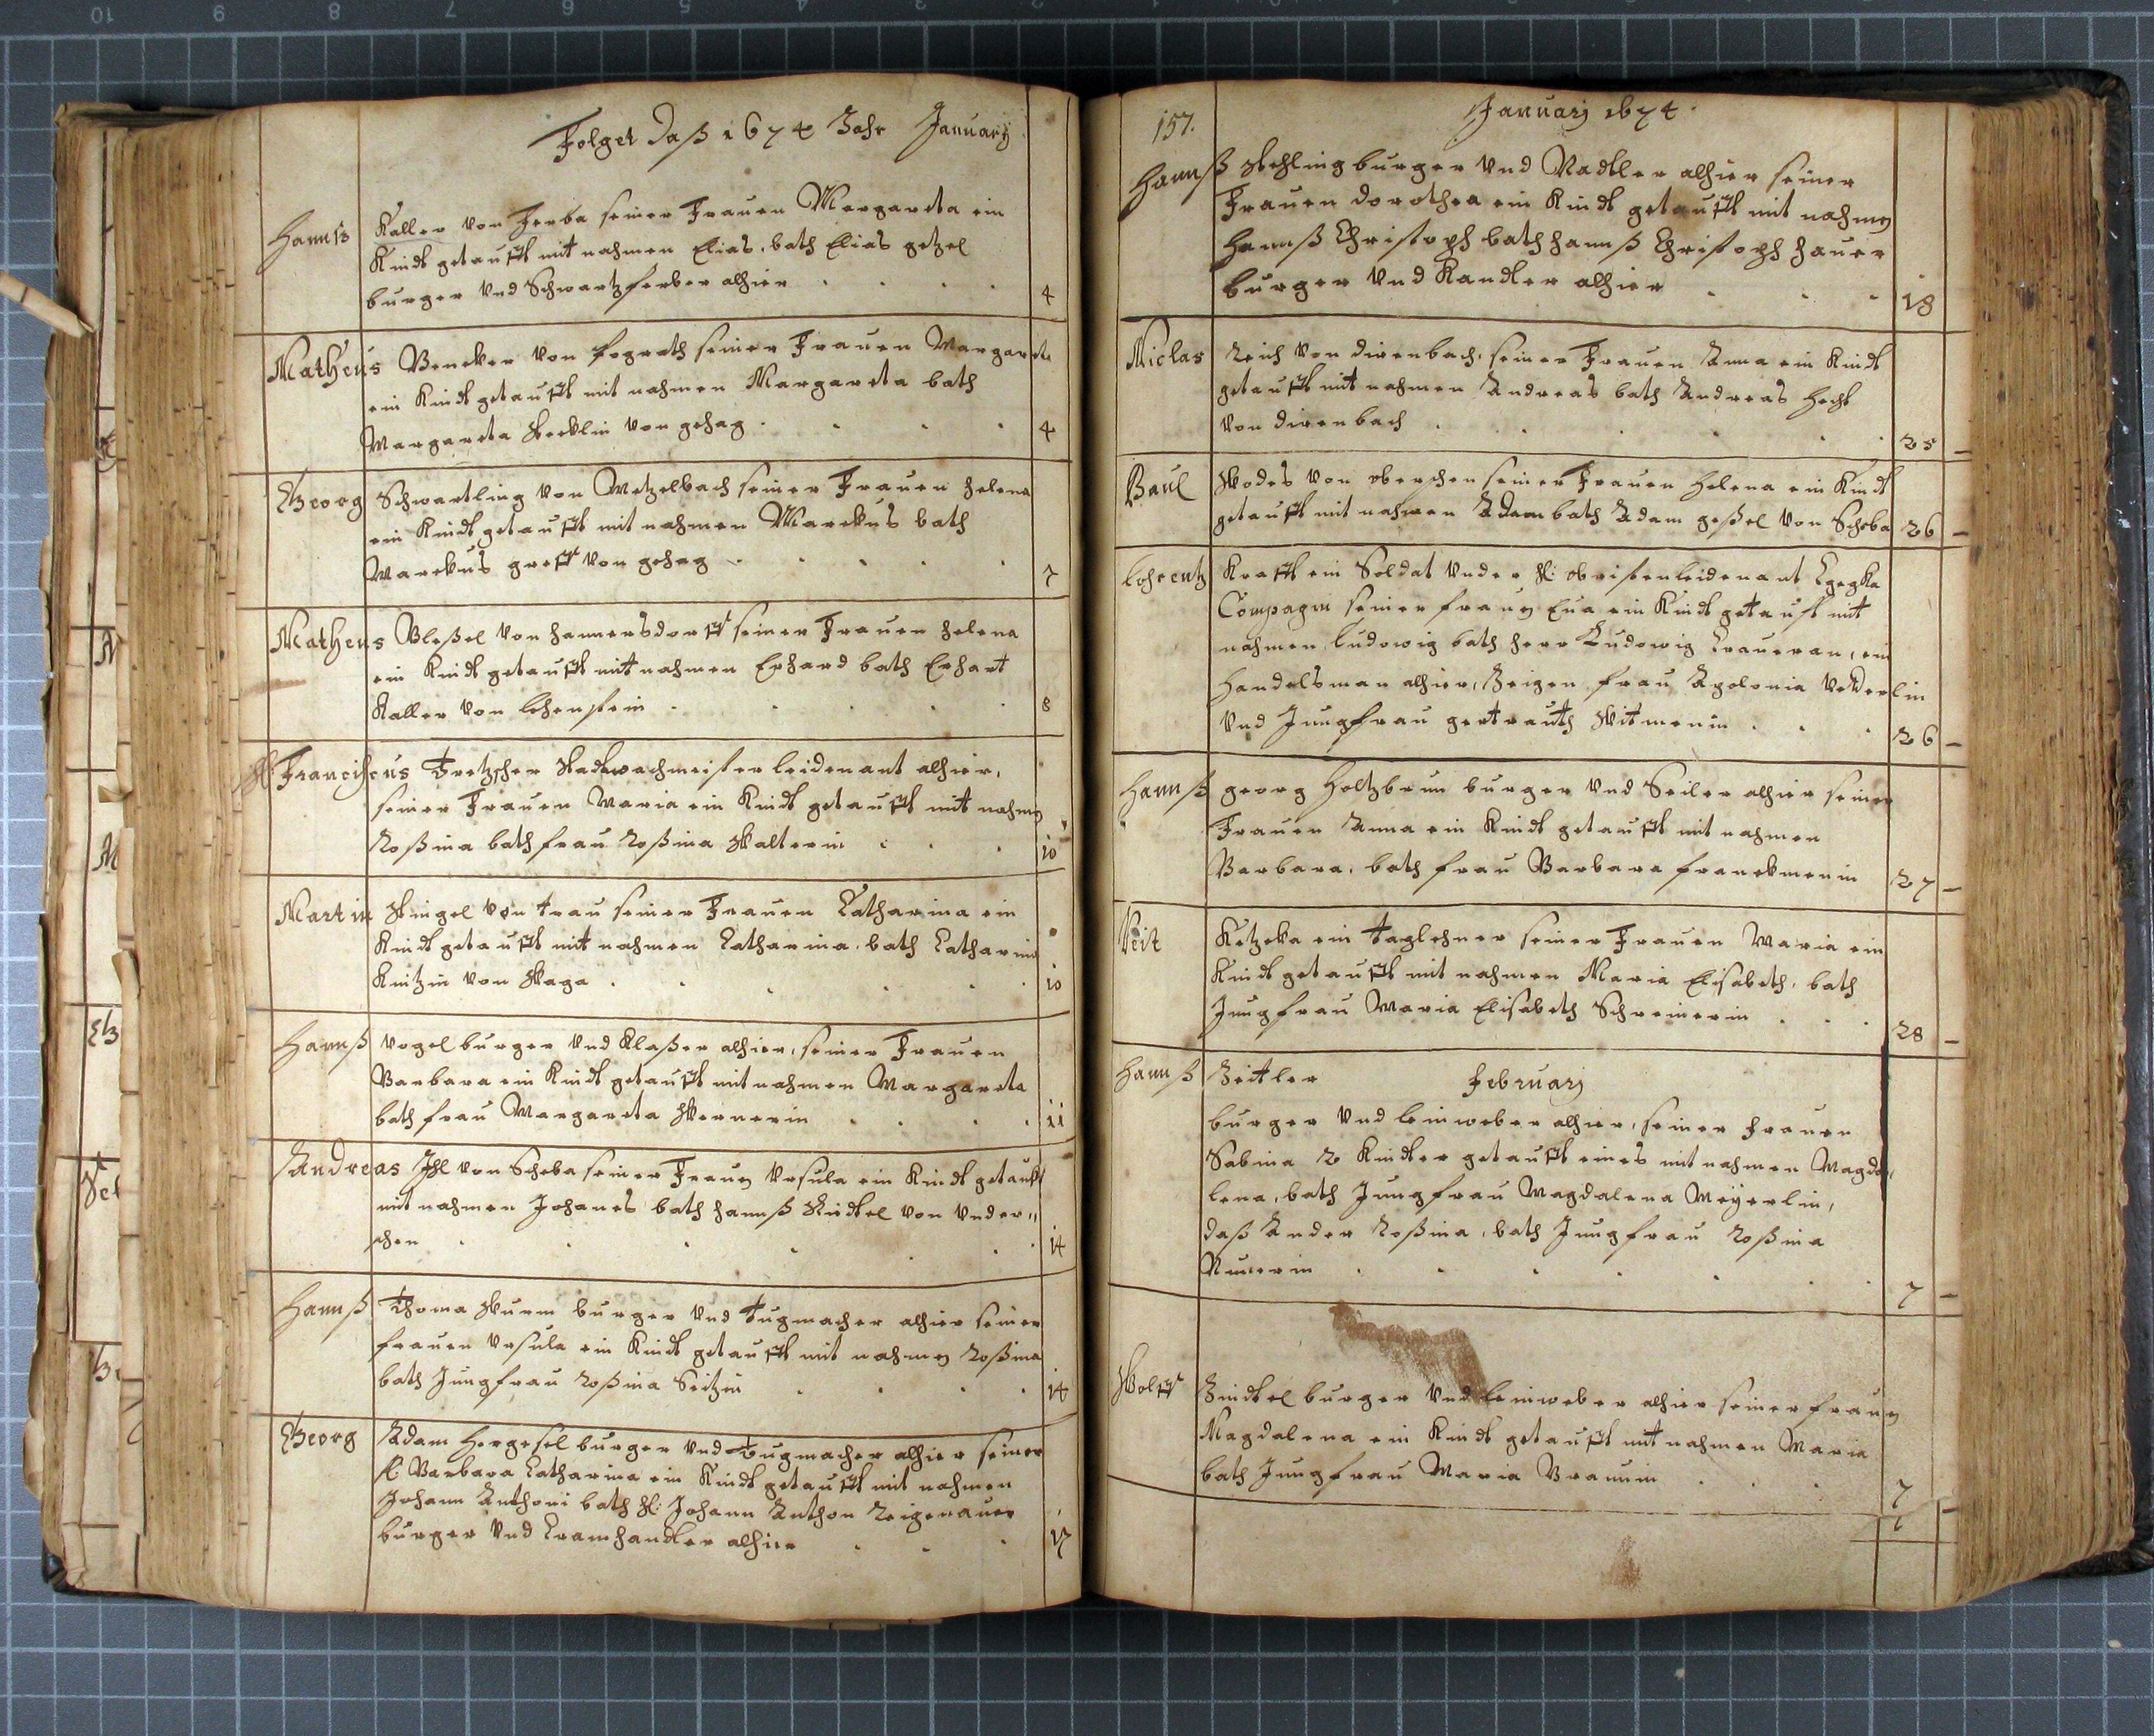 Folget daß 1674 Jahr January
Hannß Kaller von Ferba seiner Frauen Margareta ein
Kindt getaufft mit nahmen Elias, bath Elias getzel
burger Vnd Schwartzferber alhier 4
Matheus Beneker von fograth seiner Frauen Margareta
ein Kindt getaufft mit nahmen Margareta bath
Margareta von gehag 4
Georg Schwartling von Wetzelbach seiner Frauen Helena
ein Kindt getaufft mit nahmen Marckus bath
Marckus von gehag 7
Matheus Bleßel von hannersdorff seiner Frauen Helena
ein Kindt getaufft mit nahmen Erhard bath Erhart
Kaller von lohenstein 8
H: Franciscus Tretzscher Stadtwachmeister leidenant alhier,
seiner Frauen Maria ein Kindt getaufft mit nahmen
Roßina bath frau Roßina Walterin 10
Martin Wingel von trau seiner Frauen Catharina ein
Kindt getaufft mit nahmen Catharina, bath Catharina
von Haga 10
Hannß Vogel burger Vnd Klaßer alhier, seiner Frauen
Barbara ein Kindt getaufft mit nahmen Margareta
bath frau Margareta Wernerin 11
Andreas Ihl von Scheba seiner Frauen Vrsula ein Kindt getaufft
mit nahmen Johanes bath hannß von Vnder"
schen 14
Hannß Thoma Wurm burger Vnd tugmacher alhier seiner
frauen Vrsula ein Kindt getaufft mit nahmen Roßina
bath Jungfrau Roßina Seitzin 14
Georg Adam Hergesel burger Vnd Tugmacher alhier seiner
f: Barbara Catharina ein Kindt getaufft mit nahmen
Johann Anthoni bath H: Johann Anthon Reigenauer
burger Vnd Cramhandler alhier 17
157. Januarj 1674
Hannß Wehling burger Vnd Nadtler alhier seiner
Frauen dorothea ein Kindt getaufft mit nahmen
Hannß Christoph bath hannß Christoph hauer
burger Vnd Kandler alhier 18
Niclas Reich von direnbach, seiner Frauen Anna ein Kindt
getaufft mit nahmen Andreas bath Andreas Hecht
von direnbach 25
Paul Wodes von oberschen seiner Frauen Helena ein Kindt
getaufft mit nahmen Adam bath Adam geßel von Scheba 26
Lohrentz Krafft ein Soldat Vnder H: obristenleidenant
Compagni seiner frauen Eua ein Kindt getauft mit
nahmen Ludowig bath herr Ludowig Craueran, ein
Handelsman alhier, Zeigen frau Apolonia
Vnd Jungfrau gertrauth Witmenin 26
Hannß georg Holtzbrun burger Vnd Seiler alhier seiner
Frauen Anna ein Kindt getaufft mit nahmen
Barbara, bath frau Barbara franckmenin 27
Veit Ketzeka ein taglehner seiner Frauen Maria ein
Kindt getaufft mit nahmen Maria Elisabeth, bath
Jungfrau Maria Elisabeth Schreinerin 28
Hannß Zeitler Februarj
burger Vnd leinweber alhier, seiner frauen
Sabina 2 Kindter getaufft eines mit nahmen Magda,
lena, bath Jungfrau Magdalena Meyerlin,
daß Ander Roßina, bath Jungfrau Roßina
7
Wolff Zindtel burger Vnd leinweber alhier seiner frauen
Magdalena ein Kindt getaufft mit nahmen Maria
bath Jungfrau Maria Braunin 7